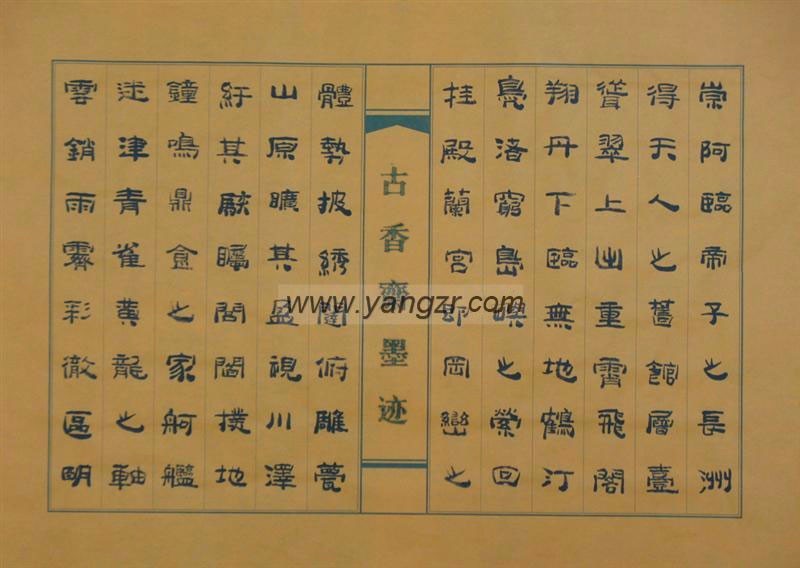 崇阿臨帝子之長洲
得天人之舊館層臺
聳翠上出重霄飛閣
翔丹下臨無地鶴汀
鳧渚窮島嶼之縈回
桂殿蘭宮即岡巒之
古香齋墨迹
體勢披綉闥俯雕甍
山原曠其盈視川澤
紆其駭矚閭閻撲地
鐘鳴鼎食之家舸艦
迷津青雀黃龍之軸
雲銷雨霽彩徹區明
www.yangzr.com